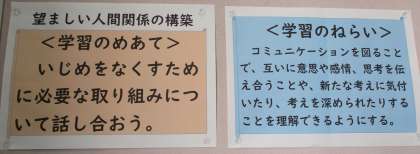 望ましい人間関係の構築
＜学習のめあて＞
いじめをなくすため
に必要な取り組みにつ
いて話し合おう。
＜学習のねらい＞
コミュニケーションを図ること
で、互いに意思や感情、思考を伝
え合うことや、新たな考えに気付
いたり、考えを深められたりする
ことを理解できるようにする。